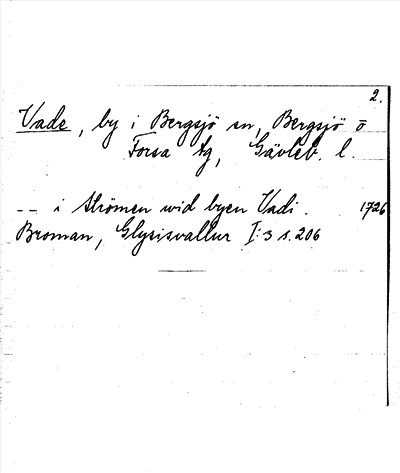 2.
Vade, by i Bergsjö sn, Bergsjö o
Forsa tg, Gävleb. l.
-- i strömen wid byen Vadi. 1726
Broman, Glysisvallur I:3 s. 206